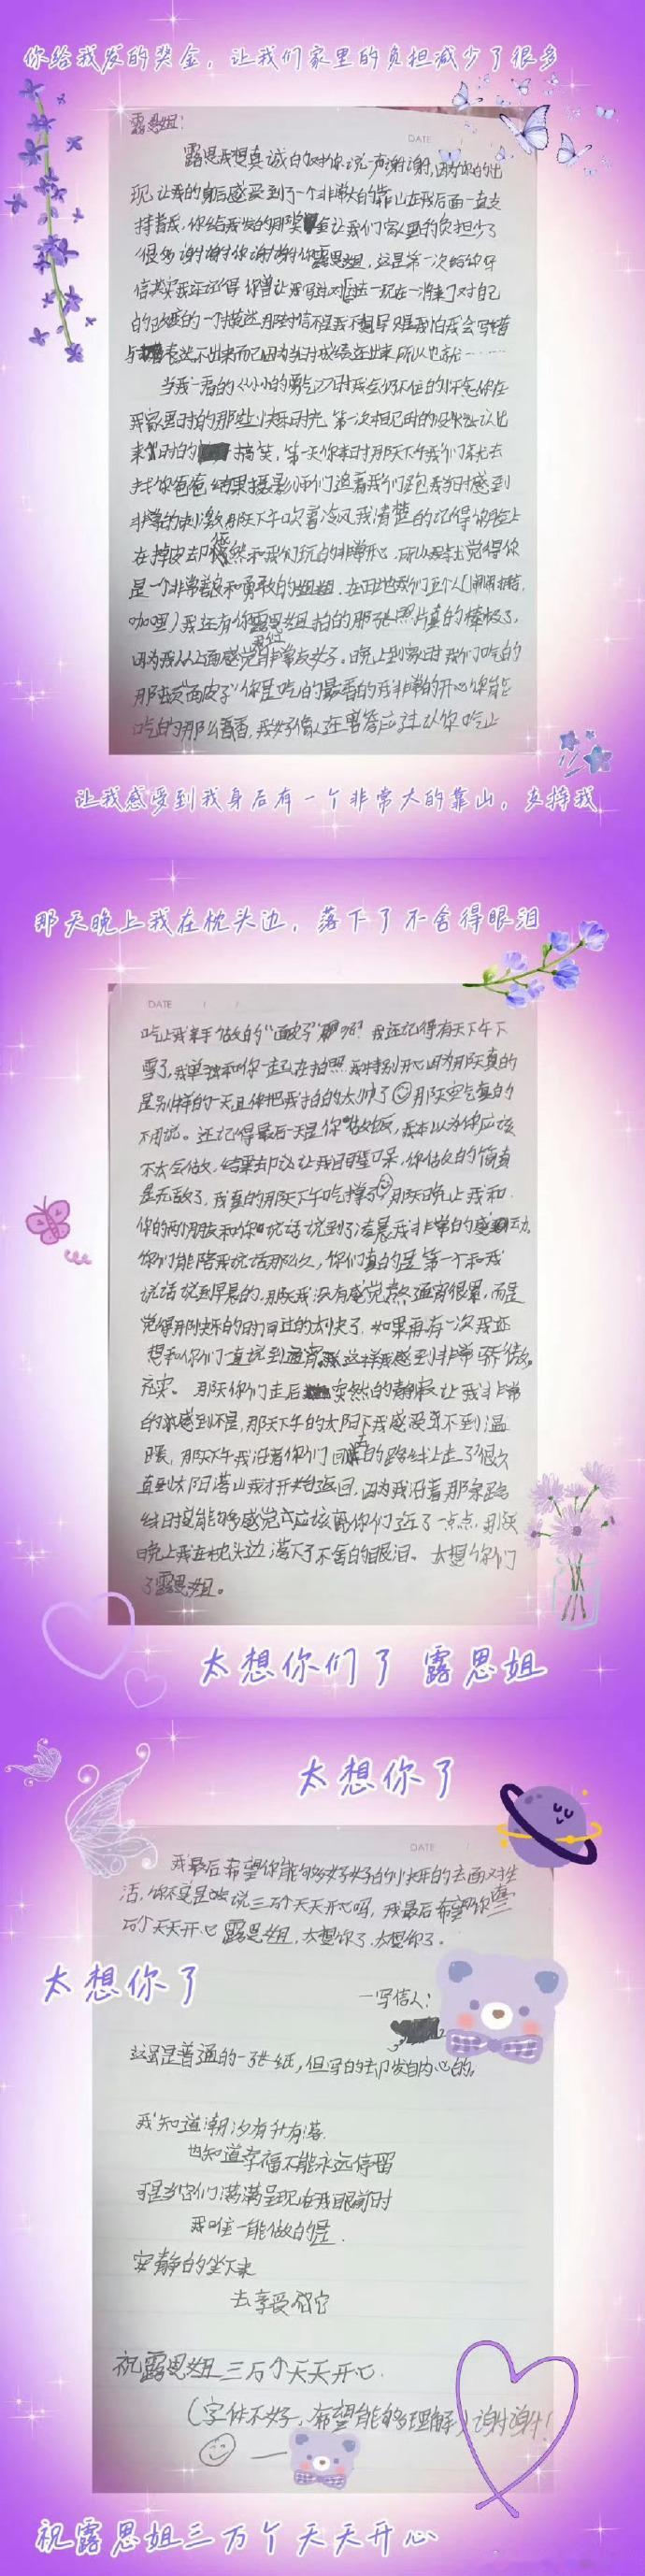 你给我发的奖金，让我们家里的负担减少了很多
露思姐：
DATE
露思姐我想真诚的对你说一声谢谢，因为你的出
现让我的身后感受到了一个非常大的靠山在我后面一直支
持着我，你给我发的那奖金让我们家里的负担少了
很多谢谢你谢谢你露思姐，这是第一次给你写
信其实我还记得你曾让我写过对过去一现在一将来了对自己
的的一封信不是我不想写只是我怕我会写错
与表达不出来而已因为当时成绩还出来所以也就……
当我一看的《小小的勇气》时我会仍不住的怀念你在
我家里时的那些快乐时光，第一次相见时的没有认出
来你时的搞笑，第一天你来时那天下午我们就去
找你爸爸结果摄影师们追着我们跑我当时感到
非常的刺激那天下午吹着冷风我清楚的记得你脸上
在掉皮去却依然和我们玩的非常开心所以我觉得你
是一个非常善良和勇敢的姐姐，在田地我们五个人（闹闹
咖哩）我还有你露思姐拍的那张照片真的棒极了，
因为我从上面感觉到非常友好。晚上到家时我们吃的
那顿“面皮子”你是吃的最香的我非常的开心你能
吃的那么香，我好像还答应过让你吃上
让我感受到我身后有一个非常大的靠山，支持我
那天晚上我在枕头边，落下了不舍得眼泪
DATE / /
吃上我亲手做的“面皮子”哦！我还记得有天下午下
雪了，我单独和你一起在拍照，我特别开心因为那天真的
是别样的一天且你把我拍的太帅了那天空气真的
不用说。还记得最后一天是你做饭，我本以为你应该
不太会做，结果却让我目瞪口呆，你做的简直
是无敌了，我真的那天下午吃撑了那天晚上我和
你的两个朋友和你说话说到了凌晨我非常的感动
你们能陪我说话那么久，你们真的是第一个和我
说话说到早晨的，那天我没有感觉熬通宵很累，而是
觉得那快乐的时间过的太快了，如果再有一次我还
想和你们一直说到通宵这样我感到非常骄傲，
充实。那天你们走后突然的静寂让我非常
的感到不是，那天下午的太阳下我感受不到温
暖，那天下午我沿着你们回去的路线上走了很久
直到太阳落山我才开始返回，因为我沿着那条路
线时我能够感觉应该离你们近了一点点，那天
晚上我在枕头边落下了不舍的眼泪。太想你们
了露思姐。
太想你们了 露思姐
太想你了
DATE
我最后希望你能够好好的快乐的去面对生
活，你不要是说三万个天天开心吗，我最后希望你三
万个天天开心露思姐，太想你了，太想你了。
太想你了
一写信人：
这虽是普通的一张纸，但写的却发自内心的。
我知道潮汐有升有落
也知道幸福不能永远停留
可是当它们满满呈现在我眼前时
我唯一能做的是
安静的坐下来
去享受它
祝露思姐三万个天天开心
（字体不好，希望能够理解）谢谢！
祝露思姐三万个天天开心